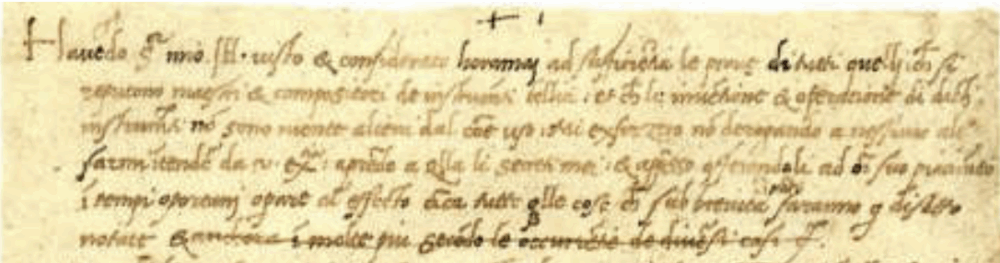 Havēdo S.or mio Ill. visto & considerato horamai ad sufficiētia le prove di tutti quelli ch̄ si
reputono maestri & compositori de instrumēti bellici: et ch̄ le inventione & operatione di dicti
instrumēti nō sono niente alieni dal cōe uso: mi exforzero nō derogando a nessuno altro
farmi intendē da v. ex.tia: aprēdo a q̄lla li secreti mei: & apresso offerendoli ad oī suo piacimēto
ī tempi oportuni operare cū effecto circa tutte q̄lle cose ch̄ sub brevità parte saranno q disotto
notate & anchora ī molte più secōdo le occurrētie de diversi casi